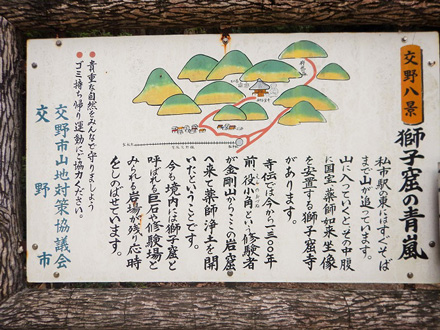 交野八景
獅子窟の青嵐
私市駅の東にはすぐそば
まで山が迫っています。
山に入っていくとその中腹
に国宝・薬師如来坐像
を安置する獅子窟寺
があります。
寺伝では今から一三〇〇年
前、役小角という修験者
が金剛山からこの岩窟
へ来て薬師浄土を開
いたということです。
今も境内には獅子窟と
呼ばれる巨石や修験場と
みられる岩場が残り、応時
をしのばせています。
●貴重な自然をみんなで守りましょう
●ゴミ持ち帰り運動にご協力ください。
交野市山地対策協議会
交野市